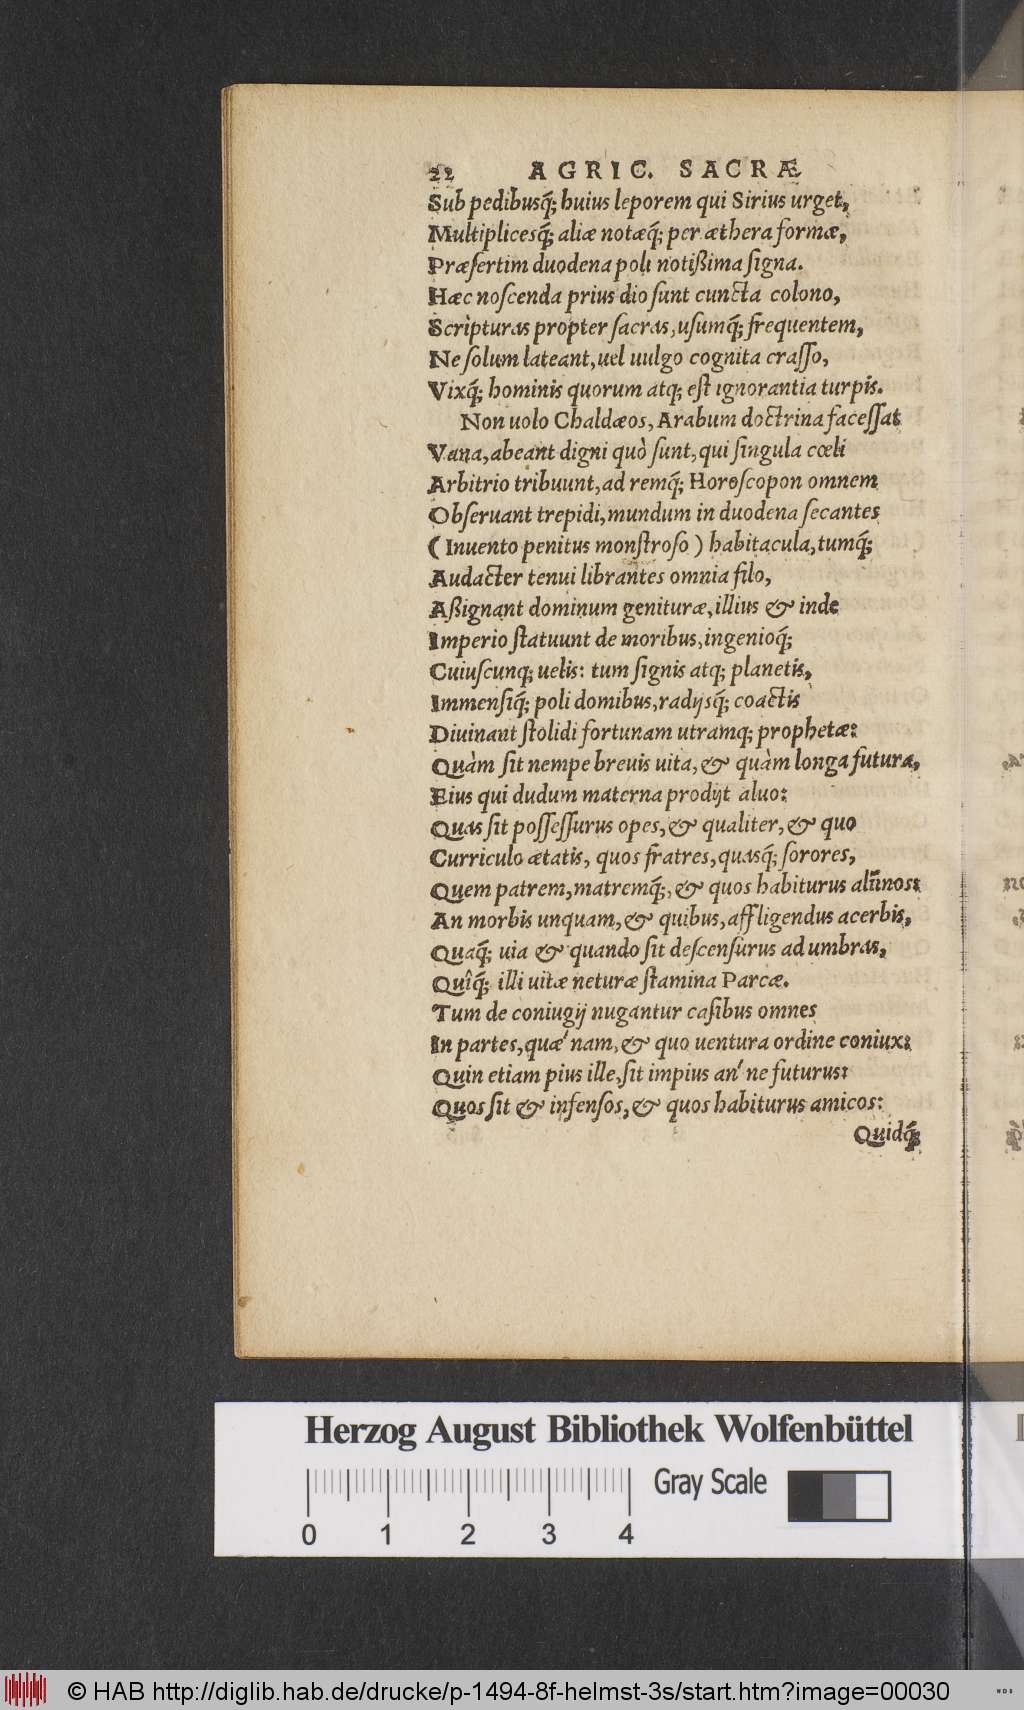 22 AGRIC. SACRÆ
Sub pedibusq́; huius leporem qui Sirius urget,
Multiplicesq́; aliæ notæq́; per æthera formæ,
Præsertim duodena poli notißima signa.
Hæc noscenda prius dio sunt cuncta colono,
Scripturas propter sacras, usumq́; frequentem,
Ne solum lateant, uel uulgo cognita crasso,
Vixq́; hominis quorum atq; est ignorantia turpis.
Non uolo Chaldæos, Arabum doctrina facessat
Vana, abeant digni quò sunt, qui singula cœli
Arbitrio tribuunt, ad remq́; Horoscopon omnem
Obseruant trepidi, mundum in duodena secantes
( Inuento penitus monstroso ) habitacula, tumq́;
Audacter tenui librantes omnia filo,
Aßignant dominum genituræ, illius & inde
Imperio statuunt de moribus, ingenioq́;
Cuiuscunq; uelis: tum signis atq; planetis,
Immensiq́; poli domibus, radijsq́; coactis
Diuinant stolidi fortunam utramq; prophetæ:
Quàm sit nempe breuis uita, & quàm longa futura,
Eius qui dudum materna prodijt aluo:
Quas sit possessurus opes, & qualiter, & quo
Curriculo ætatis, quos fratres, quasq́; sorores,
Quem patrem, matremq́;, & quos habiturus alūnos:
An morbis unquam, & quibus, affligendus acerbis,
Quaq́; uia & quando sit descensurus ad umbras,
Quîq́; illi uitæ neturæ stamina Parcæ.
Tum de coniugij nugantur casibus omnes
In partes, quæ' nam, & quo uentura ordine coniux:
Quin etiam pius ille, sit impius an' ne futurus:
Quos sit & infensos, & quos habiturus amicos:
Quidq́;
Herzog August Bibliothek Wolfenbüttel
Gray Scale
0 1 2 3 4
© HAB http://diglib.hab.de/drucke/p-1494-8f-helmst-3s/start.htm?image=00030